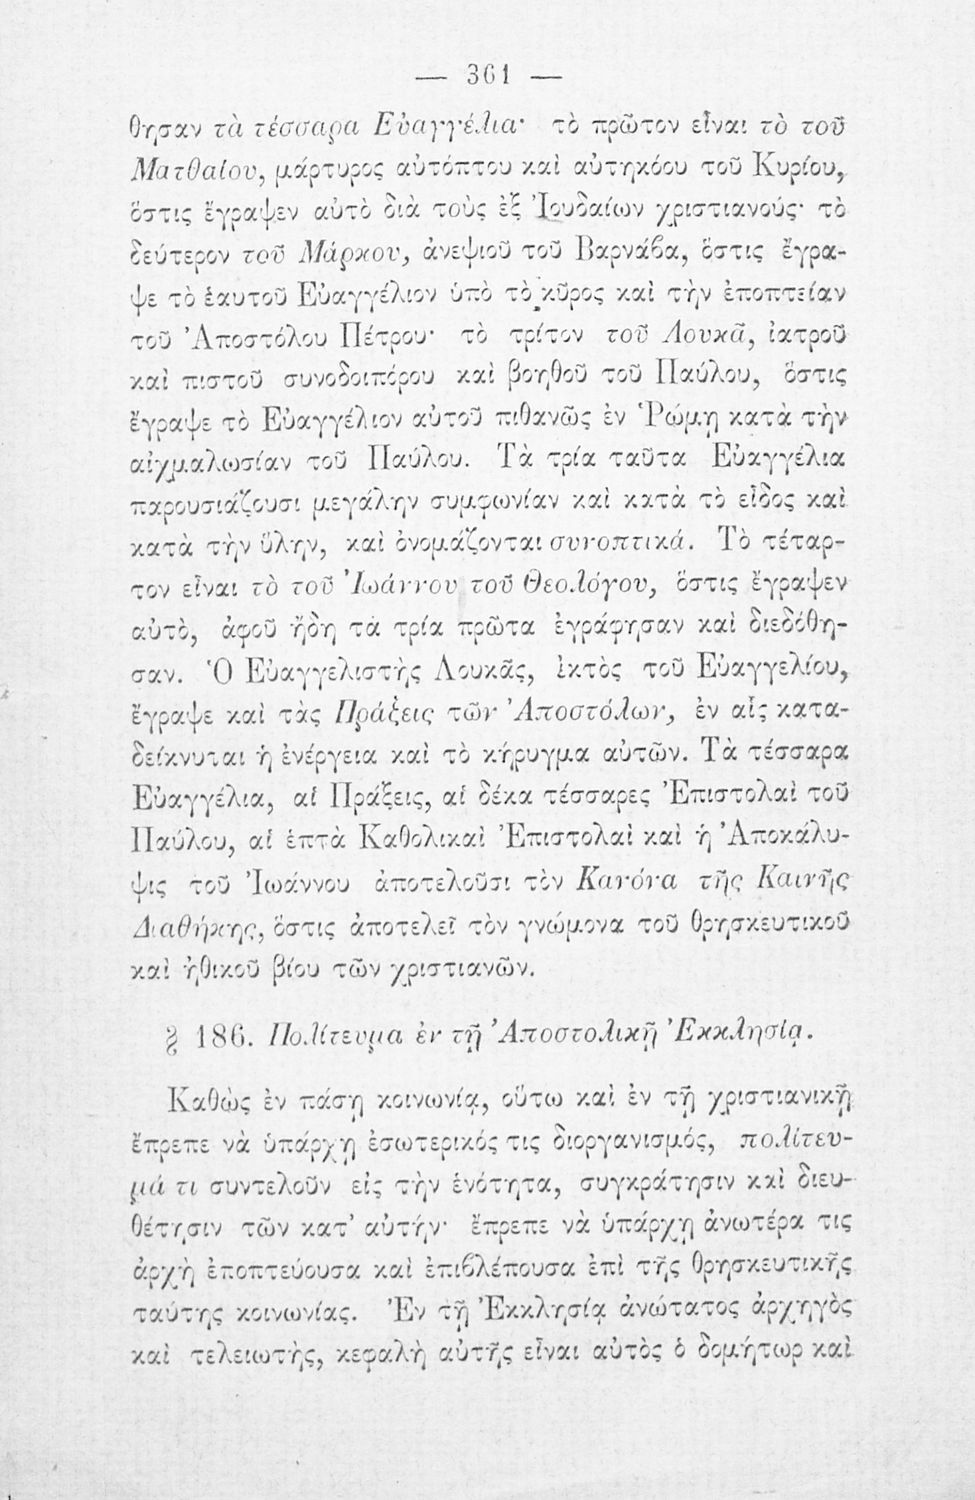 — 361 —
θησαν τὰ τέσσαρα Εὐαγγέλια· τὸ πρῶτον εἶναι τὸ τοῦ
Ματθαίου, μάρτυρος αὐτόπτου καὶ αὐτηκόου τοῦ Κυρίου,
ὅστις ἔγραψεν αὐτὸ διὰ τοὺς ἐξ Ἰουδαίων χριστιανούς· τὸ
δεύτερον τοῦ Μάρκου, ἀνεψιοῦ τοῦ Βαρνάβα, ὅστις ἔγρα-
ψε τὸ ἑαυτοῦ Εὐαγγέλιον ὑπὸ τὸ κῦρος καὶ τὴν ἐποπτείαν
τοῦ Ἀποστόλου Πέτρου· τὸ τρίτον τοῦ Λουκᾶ, ἰατροῦ
καὶ πιστοῦ συνοδοιπόρου καὶ βοηθοῦ τοῦ Παύλου, ὅστις
ἔγραψε τὸ Εὐαγγέλιον αὐτοῦ πιθανῶς ἐν Ῥώμῃ κατὰ τὴν
αἰχμαλωσίαν τοῦ Παύλου. Τὰ τρία ταῦτα Εὐαγγέλια
παρουσιάζουσι μεγάλην συμφωνίαν καὶ κατὰ τὸ εἶδος καὶ
κατὰ τὴν ὕλην, καὶ ὀνομάζονται συνοπτικά. Τὸ τέταρ-
τον εἶναι τὸ τοῦ Ἰωάννου τοῦ Θεολόγου, ὅστις ἔγραψεν
αὐτὸ, ἀφοῦ ἤδη τὰ τρία πρῶτα ἐγράφησαν καὶ διεδόθη-
σαν. Ὁ Εὐαγγελιστὴς Λουκᾶς, ἐκτὸς τοῦ Εὐαγγελίου,
ἔγραψε καὶ τὰς Πράξεις τῶν Ἀποστόλων, ἐν αἷς κατα-
δείκνυται ἡ ἐνέργεια καὶ τὸ κήρυγμα αὐτῶν. Τὰ τέσσαρα
Εὐαγγέλια, αἱ Πράξεις, αἱ δέκα τέσσαρες Ἐπιστολαὶ τοῦ
Παύλου, αἱ ἑπτὰ Καθολικαὶ Ἐπιστολαὶ καὶ ἡ Ἀποκάλυ-
ψις τοῦ Ἰωάννου ἀποτελοῦσι τὸν Κανόνα τῆς Καινῆς
Διαθήκης, ὅστις ἀποτελεῖ τὸν γνώμονα τοῦ θρησκευτικοῦ
καὶ ἠθικοῦ βίου τῶν χριστιανῶν.
§ 186. Πολίτευμα ἐν τῇ Ἀποστολικῇ Ἐκκλησίᾳ.
Καθὼς ἐν πάσῃ κοινωνίᾳ, οὕτω καὶ ἐν τῇ χριστιανικῇ
ἔπρεπε νὰ ὑπάρχῃ ἐσωτερικός τις διοργανισμός, πολίτευ-
μά τι συντελοῦν εἰς τὴν ἑνότητα, συγκράτησιν καὶ διευ-
θέτησιν τῶν κατ’ αὐτήν· ἔπρεπε νὰ ὑπάρχῃ ἀνωτέρα τις
ἀρχὴ ἐποπτεύουσα καὶ ἐπιβλέπουσα ἐπὶ τῆς θρησκευτικῆς
ταύτης κοινωνίας. Ἐν τῇ Ἐκκλησίᾳ ἀνώτατος ἀρχηγὸς
καὶ τελειωτὴς, κεφαλὴ αὐτῆς εἶναι αὐτὸς ὁ δομήτωρ καὶ